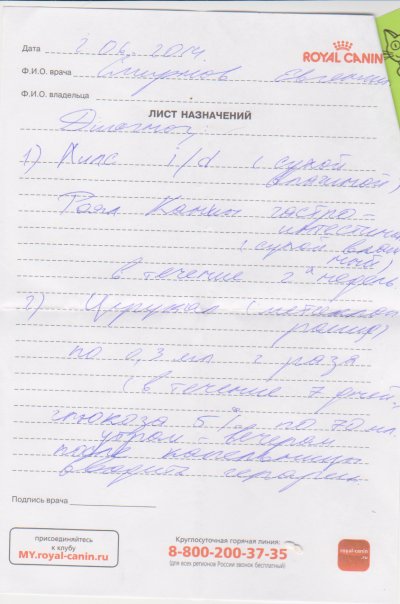 ROYAL CANIN
Дата 2 06. 2014.
Ф.И.О. врача Смирнов Евгений
Ф.И.О. владельца
ЛИСТ НАЗНАЧЕНИЙ
Диагноз:
1) Хилс i/d (сухой
влажный)
Роял Канин гастро-
интестинал
(сухой влаж
ный)
в течение 2х недель
2) Церукал (метоклоп
рамид)
по 0,3 мл 2 раза
(в течение 7 дней,
глюкоза 5% по 70 мл.
утром - вечером
после капельницы
вводить гепарин.
Подпись врача
присоединяйтесь
к клубу
MY.royal-canin.ru
Круглосуточная горячая линия:
8-800-200-37-35
(для всех регионов России звонок бесплатный)
royal-canin
.ru